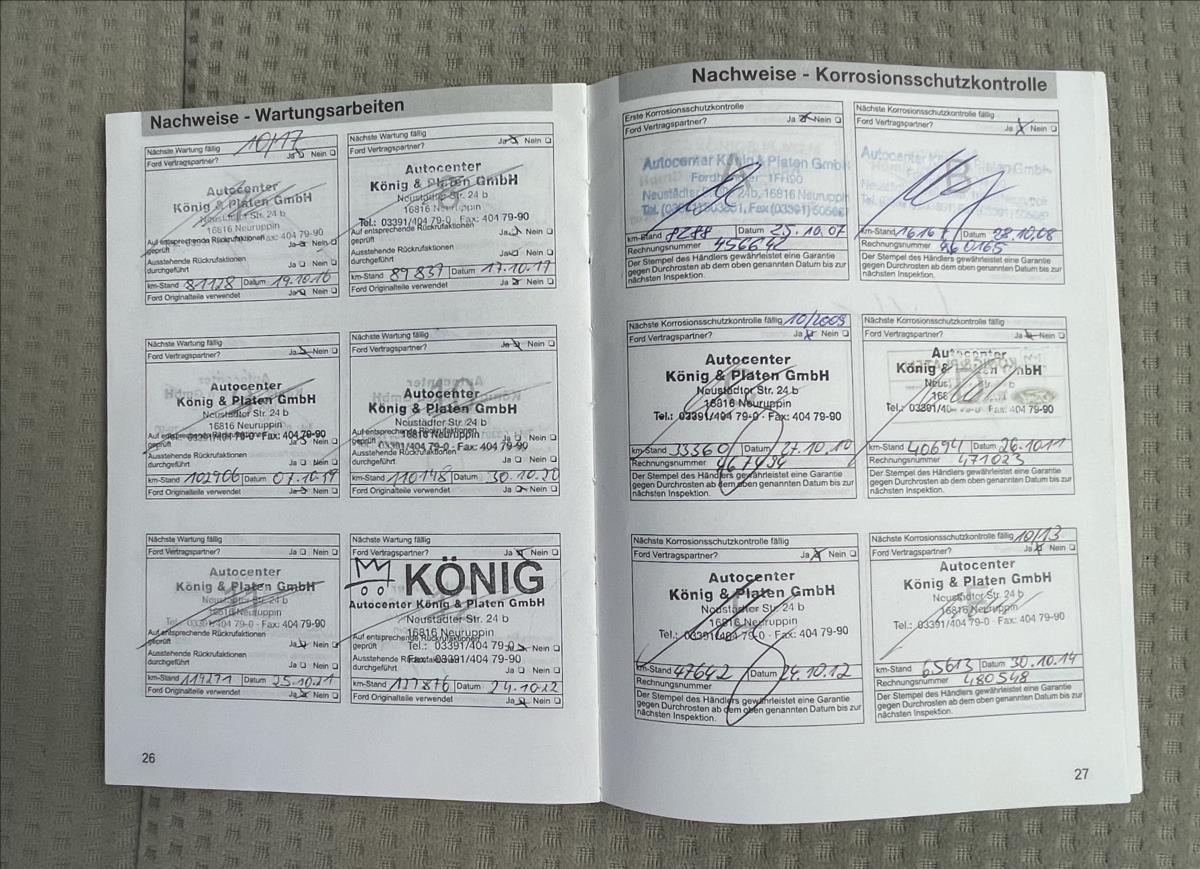 Nachweise - Wartungsarbeiten
Nächste Wartung fällig 10/17
Ford Vertragspartner? Ja Nein
Autocenter
König & Platen GmbH
Neustädter Str. 24 b
16816 Neuruppin
Fax: 404 79-90
Auf entsprechende Rückrufaktionen
geprüft Ja Nein
Ausstehende Rückrufaktionen
durchgeführt Ja Nein
km-Stand 81128 Datum 19.10.16
Ford Originalteile verwendet Ja Nein
Nächste Wartung fällig
Ford Vertragspartner? Ja Nein
Autocenter
König & Platen GmbH
Neustädter Str. 24 b
16816 Neuruppin
Tel.: 03391/404 79-0 · Fax: 404 79-90
Auf entsprechende Rückrufaktionen
geprüft Ja Nein
Ausstehende Rückrufaktionen
durchgeführt Ja Nein
km-Stand 89839 Datum 17.10.17
Ford Originalteile verwendet Ja Nein
Nächste Wartung fällig
Ford Vertragspartner? Ja Nein
Autocenter
König & Platen GmbH
Neustädter Str. 24 b
16816 Neuruppin
03391/404 79-0 · Fax: 404 79-90
Auf entsprechende Rückrufaktionen
geprüft Ja Nein
Ausstehende Rückrufaktionen
durchgeführt Ja Nein
km-Stand 102966 Datum 07.10.19
Ford Originalteile verwendet Ja Nein
Nächste Wartung fällig
Ford Vertragspartner? Ja Nein
Autocenter
König & Platen GmbH
Neustädter Str. 24 b
16816 Neuruppin
03391/404 79-0 · Fax: 404 79-90
Auf entsprechende Rückrufaktionen
geprüft Ja Nein
Ausstehende Rückrufaktionen
durchgeführt Ja Nein
km-Stand 110148 Datum 30.10.20
Ford Originalteile verwendet Ja Nein
Nächste Wartung fällig
Ford Vertragspartner? Ja Nein
Autocenter
König & Platen GmbH
Neustädter Str. 24 b
16816 Neuruppin
Tel.: 03391/404 79-0 · Fax: 404 79-90
Auf entsprechende Rückrufaktionen
geprüft Ja Nein
Ausstehende Rückrufaktionen
durchgeführt Ja Nein
km-Stand 119271 Datum 25.10.21
Ford Originalteile verwendet Ja Nein
Nächste Wartung fällig
Ford Vertragspartner? Ja Nein
KÖNIG
Autocenter König & Platen GmbH
Neustädter Str. 24 b
16816 Neuruppin
Tel.: 03391/404 79-0
Auf entsprechende Rückrufaktionen
geprüft Ja Nein
Fax: 03391/404 79-90
Ausstehende Rückrufaktionen
durchgeführt Ja Nein
km-Stand 127876 Datum 24.10.22
Ford Originalteile verwendet Ja Nein
26
Nachweise - Korrosionsschutzkontrolle
Erste Korrosionsschutzkontrolle
Ford Vertragspartner? Ja Nein
Autocenter König & Platen GmbH
A
Neustädter Str. 24b, 16816 Neuruppin
km-Stand 8288 Datum 25.10.07
Rechnungsnummer 456642
Der Stempel des Händlers gewährleistet eine Garantie
gegen Durchrosten ab dem oben genannten Datum bis zur
nächsten Inspektion.
Nächste Korrosionsschutzkontrolle fällig
Ford Vertragspartner? Ja Nein
Autocenter König & Platen GmbH
B
km-Stand Datum 28.10.08
Rechnungsnummer 460165
Der Stempel des Händlers gewährleistet eine Garantie
gegen Durchrosten ab dem oben genannten Datum bis zur
nächsten Inspektion.
Nächste Korrosionsschutzkontrolle fällig 10/2009
Ford Vertragspartner? Ja Nein
Autocenter
König & Platen GmbH
Neustädter Str. 24 b
16816 Neuruppin
Tel.: 03391/404 79-0 · Fax: 404 79-90
km-Stand 33360 Datum 27.10.10
Rechnungsnummer
Der Stempel des Händlers gewährleistet eine Garantie
gegen Durchrosten ab dem oben genannten Datum bis zur
nächsten Inspektion.
Nächste Korrosionsschutzkontrolle fällig
Ford Vertragspartner? Ja Nein
Autocenter
König & Platen GmbH
03391/404 79-0 · Fax: 404 79-90
km-Stand 40694 Datum 26.10.11
Rechnungsnummer 471023
Der Stempel des Händlers gewährleistet eine Garantie
gegen Durchrosten ab dem oben genannten Datum bis zur
nächsten Inspektion.
Nächste Korrosionsschutzkontrolle fällig
Ford Vertragspartner? Ja Nein
Autocenter
König & Platen GmbH
Neustädter Str. 24 b
16816 Neuruppin
Tel.: 03391/404 79-0 · Fax: 404 79-90
km-Stand 47642 Datum 24.10.12
Rechnungsnummer
Der Stempel des Händlers gewährleistet eine Garantie
gegen Durchrosten ab dem oben genannten Datum bis zur
nächsten Inspektion.
Nächste Korrosionsschutzkontrolle fällig 10/13
Ford Vertragspartner? Ja Nein
Autocenter
König & Platen GmbH
Neustädter Str. 24 b
16816 Neuruppin
Tel.: 03391/404 79-0 · Fax: 404 79-90
km-Stand 65613 Datum 30.10.14
Rechnungsnummer 480548
Der Stempel des Händlers gewährleistet eine Garantie
gegen Durchrosten ab dem oben genannten Datum bis zur
nächsten Inspektion.
27